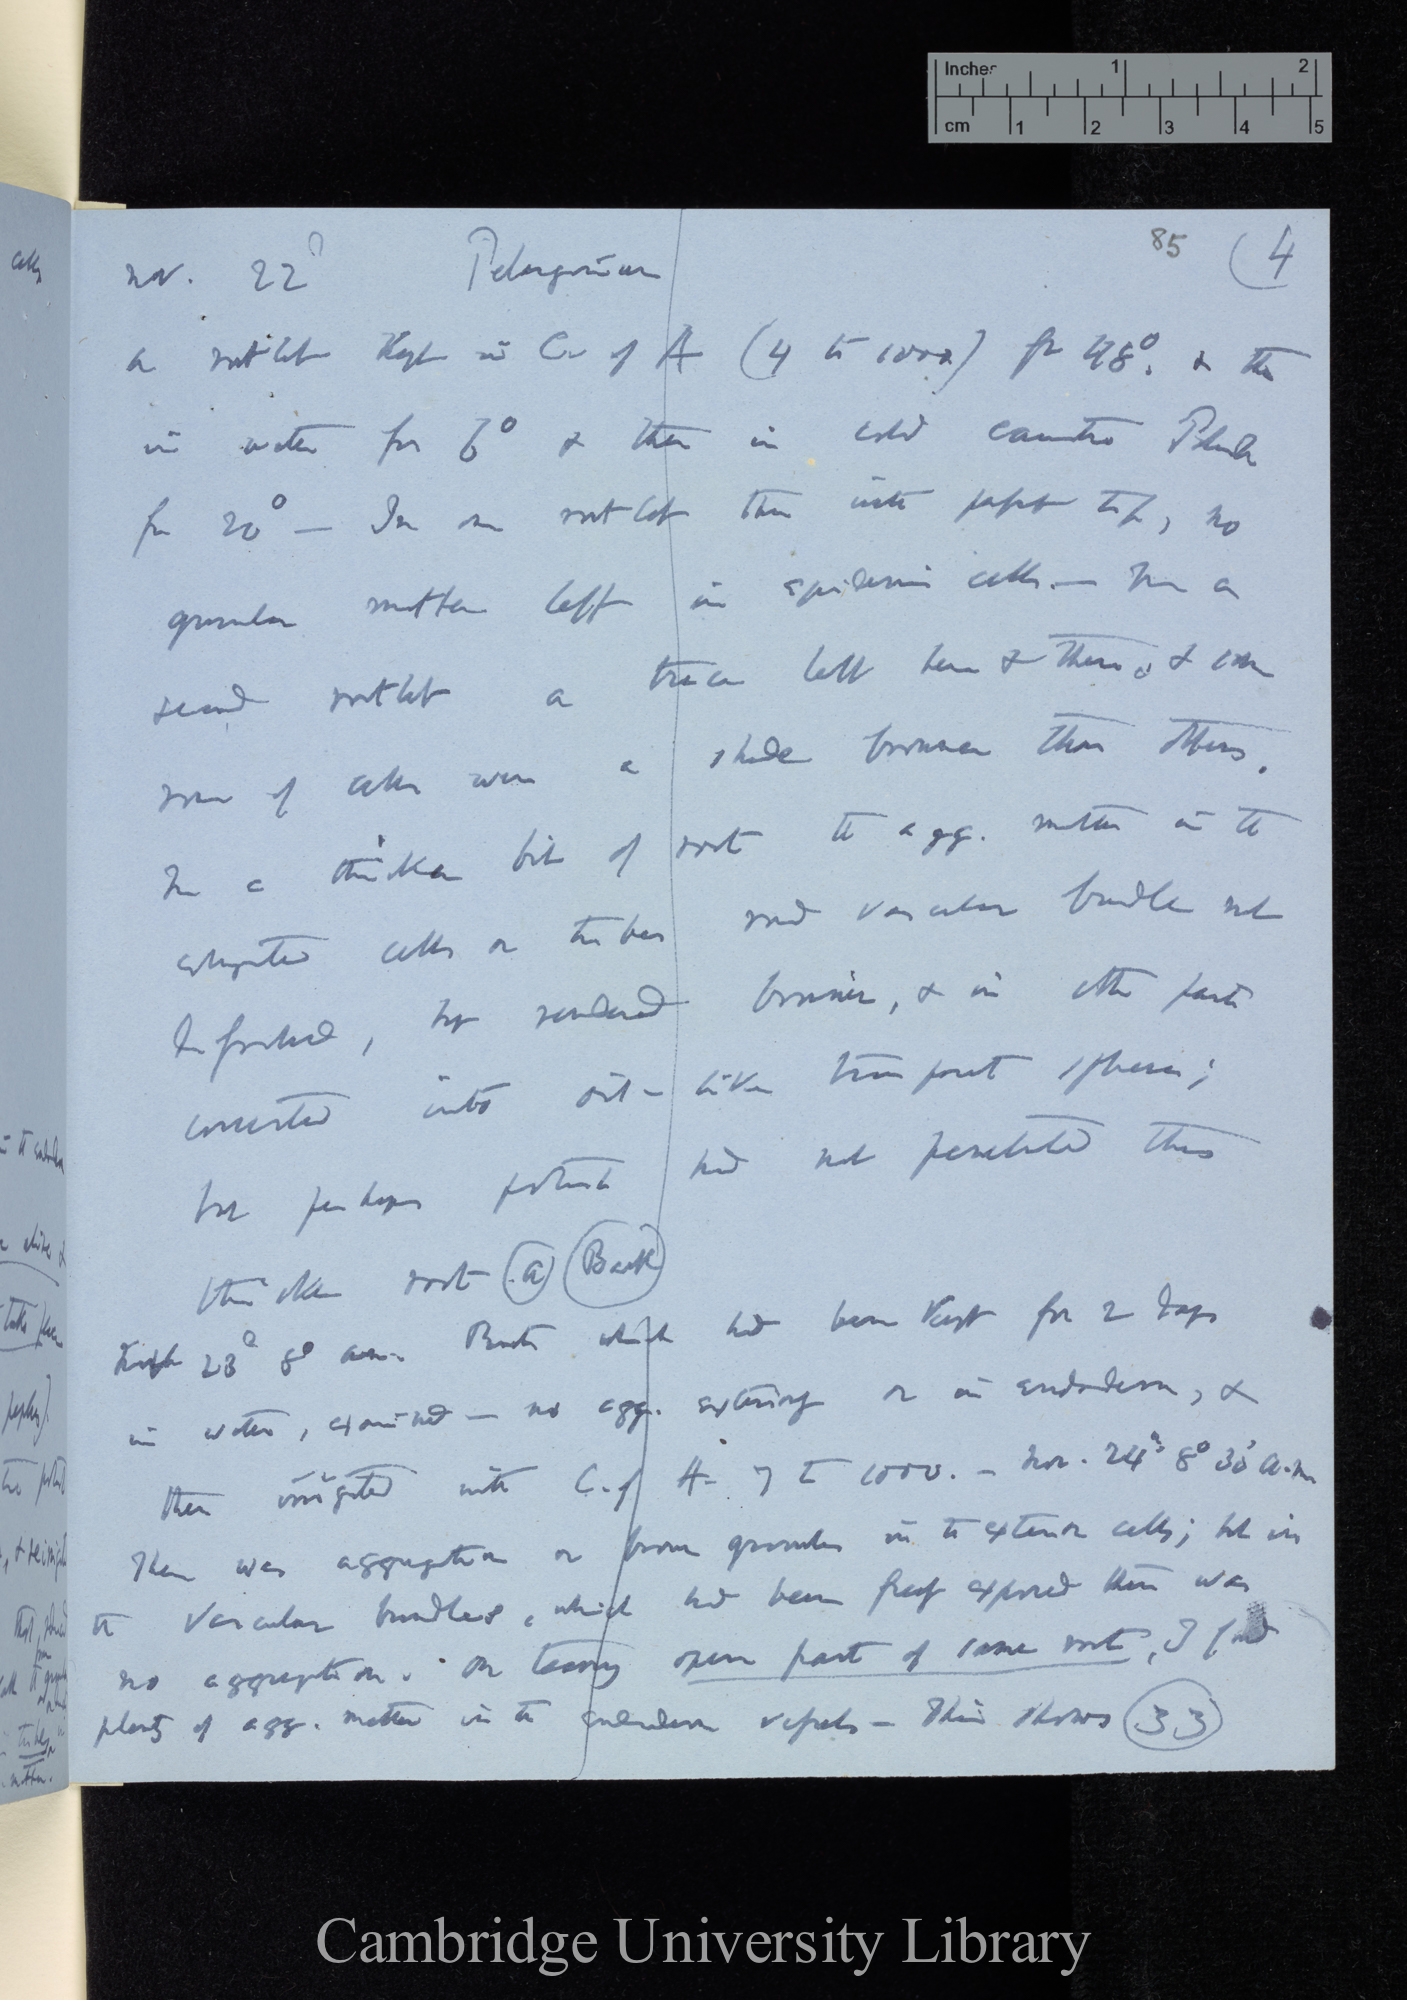 85 (4
Nov. 22d Pelargonium
A rootlet kept in C. of A (4 to 1000) for 48°. & then
in water for 6° & then in cold caustic Potash
for 20° — In one rootlet then with perfect tip, no
granular matter left in epidermic cells. — In a
second rootlet a trace left here & there, & some
rows of cells were a shade browner than others.
In a thicker bit of root the agg. matter in the
elongated cells or tubes round vascular bundle not
dissolved, but rendered browner, & in other parts
converted into oil-like transparent spheres;
but perhaps potash had not penetrated this
thicker root (a) (Back)
23d 8° a.m. Roots which had been kept for 2 days
in water, examined — no agg. exteriorly or in endoderm, &
then irrigated with C. of A. 7 to 1000. — Nov. 24th 8° 30' a.m
There was aggregation or brown granules in the exterior cells; but in
the vascular bundles, which had been freely exposed there was
no aggregation. On tearing open part of same root, I find
plenty of agg. matter in the endoderm vessels — This shows (33)
Inches 1 2
cm 1 2 3 4 5
Cambridge University Library